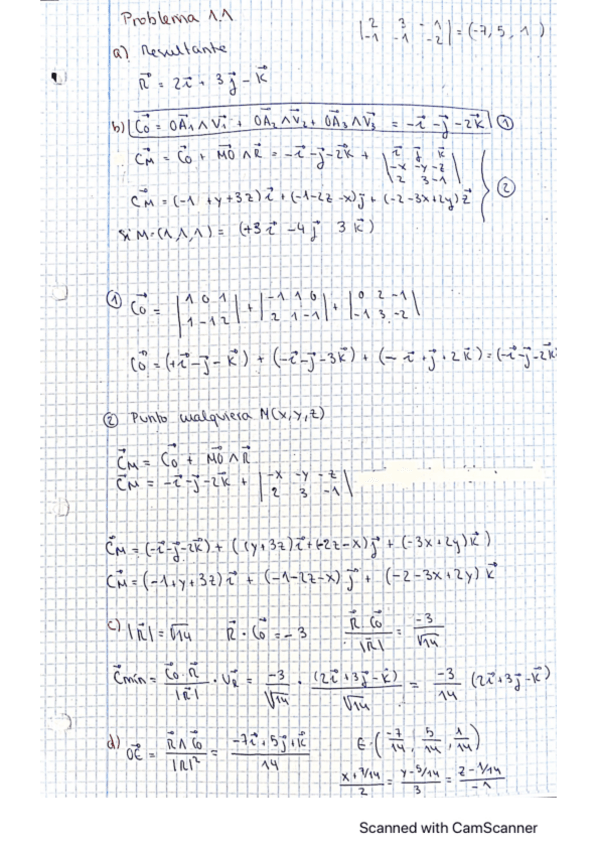 Problema 1.1
|2 3 -1
-1 -1 -2| = (-7, 5, 1)
a) Resultante
R⃗ = 2i⃗ + 3j⃗ - k⃗
b) C⃗o = OA⃗₁ ∧ V⃗₁ + OA⃗₂ ∧ V⃗₂ + OA⃗₃ ∧ V⃗₃ = -i⃗ - j⃗ - 2k⃗ ①
C⃗M = C⃗o + MO⃗ ∧ R⃗ = -i⃗ - j⃗ - 2k⃗ + |i⃗ j⃗ k⃗
-x -y -z
2 3 -1|
C⃗M = (-1 + y + 3z) i⃗ + (-1 - 2z - x) j⃗ + (-2 - 3x + 2y) z⃗ ②
Si M = (1, 1, 1) = (+3 i⃗ - 4 j⃗ 3 k⃗)
① C⃗o = |1 0 1
1 -1 2| + |-1 1 0
2 1 -1| + |0 2 -1
-1 3 -2|
C⃗o = (+i⃗ - j⃗ - k⃗) + (-i⃗ - j⃗ - 3k⃗) + (- i⃗ + j⃗ + 2k⃗) = (-i⃗ - j⃗ - 2k⃗
② Punto cualquiera M(x, y, z)
C⃗M = C⃗o + MO⃗ ∧ R⃗
C⃗M = -i⃗ - j⃗ - 2k⃗ + |-x -y -z
2 3 -1|
C⃗M = (-i⃗ - j⃗ - 2k⃗) + ((y + 3z) i⃗ + (-2z - x) j⃗ + (-3x + 2y) k⃗)
C⃗M = (-1 + y + 3z) i⃗ + (-1 - 2z - x) j⃗ + (-2 - 3x + 2y) k⃗
c) |R⃗| = √14 R⃗ · C⃗o = -3 R⃗ C⃗o / |R⃗| = -3 / √14
C⃗mín = C⃗o · R⃗ / |R⃗| · U⃗R = -3 / √14 · (2i⃗ + 3j⃗ - k⃗) / √14 = -3 / 14 (2i⃗ + 3j⃗ - k⃗)
d) OE⃗ = R⃗ ∧ C⃗o / |R|² = -7i⃗ + 5j⃗ + k⃗ / 14 E · (-7/14, 5/14, 1/14)
x + 7/14 / 2 = y - 5/14 / 3 = z - 1/14 / -1
Scanned with CamScanner